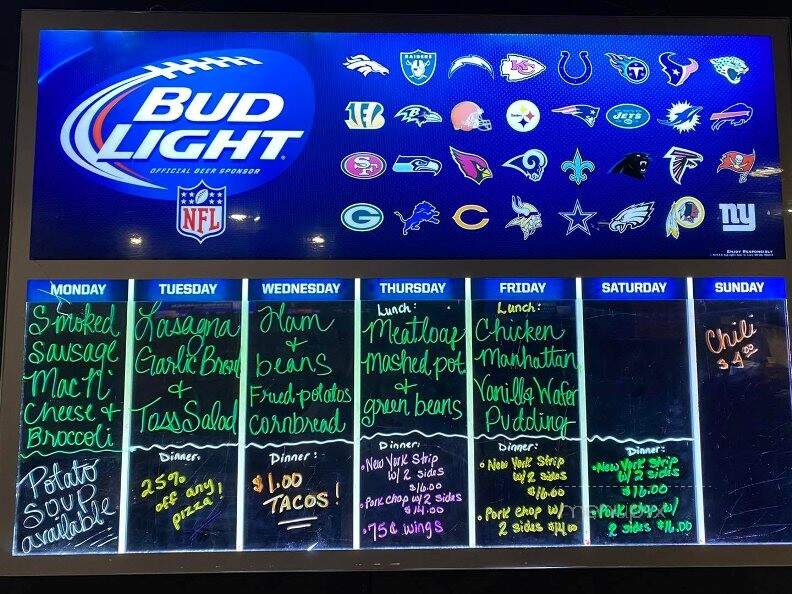 BUD
LIGHT
OFFICIAL BEER SPONSOR
NFL
RAIDERS
JETS
ny
ENJOY RESPONSIBLY
MONDAY
Smoked
Sausage
Mac N'
Cheese +
Broccoli
Potato
Soup
available
TUESDAY
Lasagna
Garlic Bread
&
Toss Salad
Dinner:
25%
off any
pizza!
WEDNESDAY
Ham
&
beans
Fried potatos
cornbread
Dinner:
$1.00
TACOS!
THURSDAY
Lunch:
Meatloaf
mashed pot.
&
green beans
Dinner:
• New York Strip
w/ 2 sides
$16.00
• Pork chop w/ 2 sides
$14.00
• 75¢ wings
FRIDAY
Lunch:
Chicken
manhattan
Vanilla Wafer
Pudding
Dinner:
• New York Strip
w/ 2 sides
$16.00
• Pork chop w/
2 sides $14.00
SATURDAY
Dinner:
• New York Strip
w/ 2 sides
$16.00
Pork Chop w/
2 sides $16.00
SUNDAY
Chili
$4.00